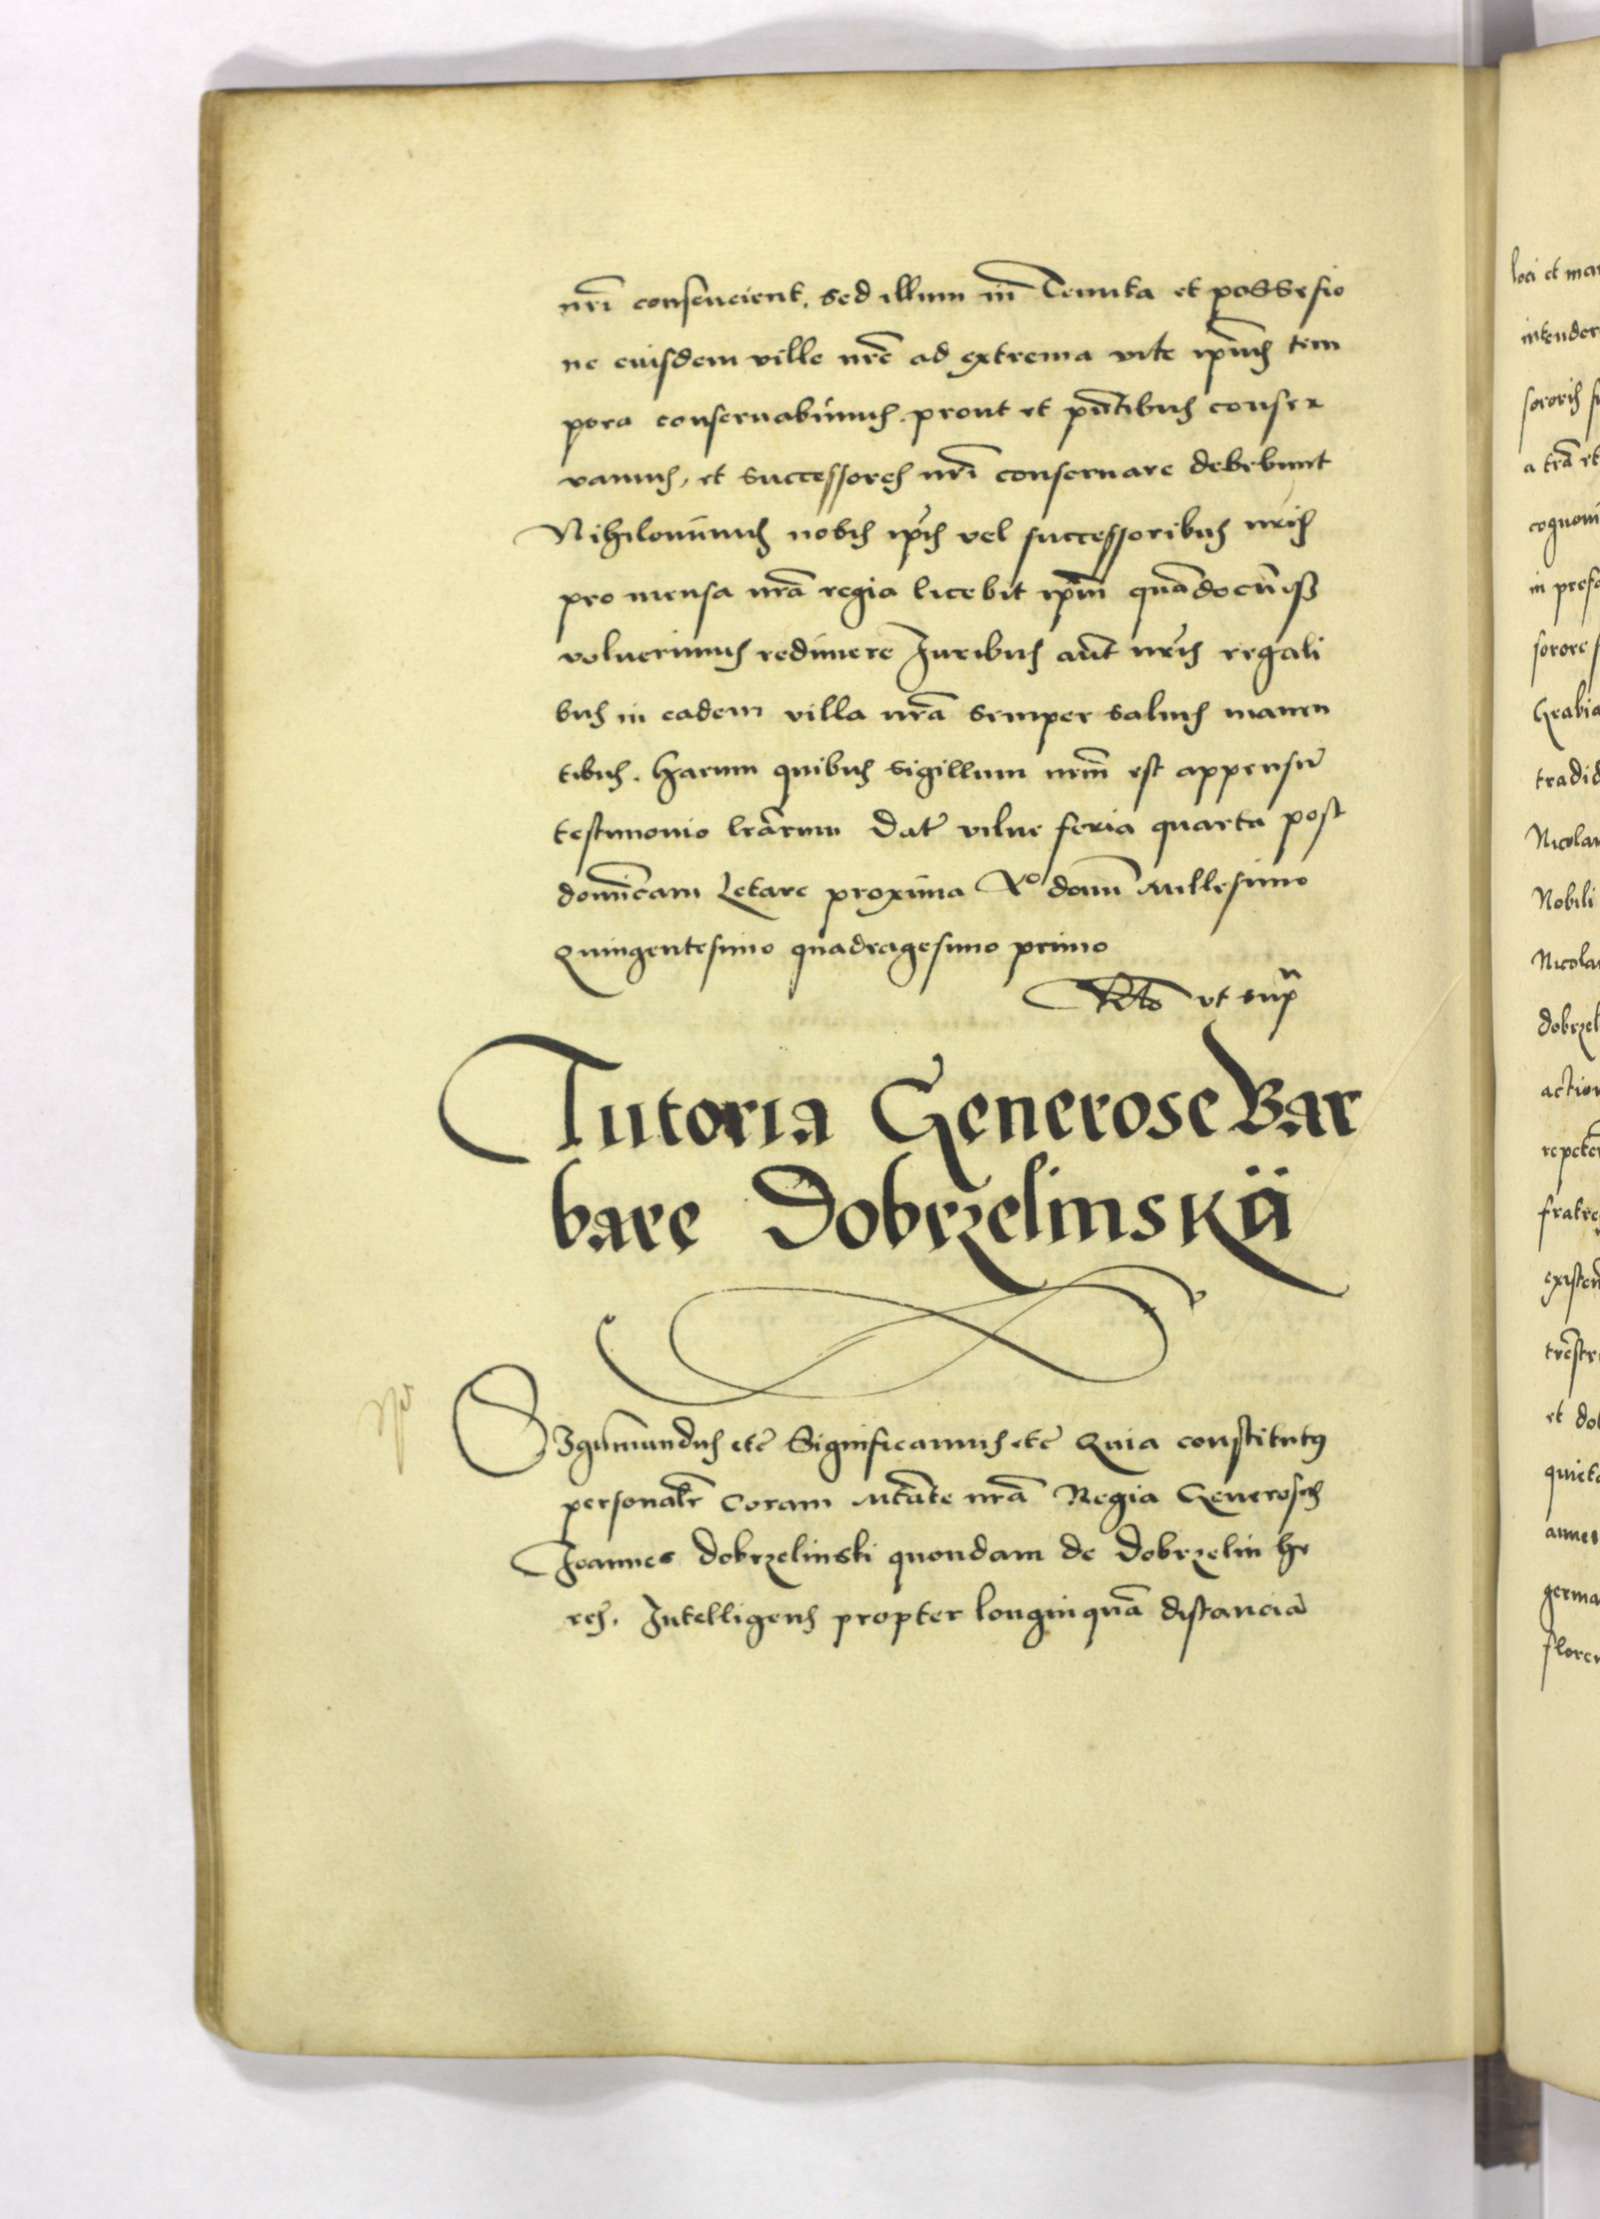 nr̃i consencient. sed illum in Tenuta et possessio
ne eiusdem ville nr̃e ad extrema vite ip̃ius tem
pora conseruabimus. prout et pñtibus conser
vamus, et successores nr̃i conseruare debebunt
Nihilominus nobis ip̃is vel successoribus nr̃is
pro mensa nr̃a regia licebit ip̃am quãdocũqꝫ
voluerimus redimere Juribus aũt nr̃is regali
bus in eadem villa nr̃a semper saluis manen
tibus. Harum quibus sigillum nr̃m est appensũ
testimonio lr̃arum Dat̃ vilne feria quarta post
dominicam Letare proxima Aº domĩ Millesimo
Quingentesimo quadragesimo primo
Rl̃o vt sup̃
Tutoria Generose Bar
bare Dobrzelinskii
Sigismundus etc̃ Significamus etc̃ Quia constitutꝰ
personalr̃ Coram Mtãte nr̃a Regia Generosus
Joannes Dobrzelinski quondam de Dobrzelin he
res. Intelligens propter longinquã distanciã
loci et ma
intender
sororis s
a tr̃a et
cognoui
in prefa
sorore s
Grabia
tradid
Nicolau
Nobili
Nicola
dobrzel
action
repetẽ
fratre
existen
tr̃estr
et dob
quieta
annes
germa
floren